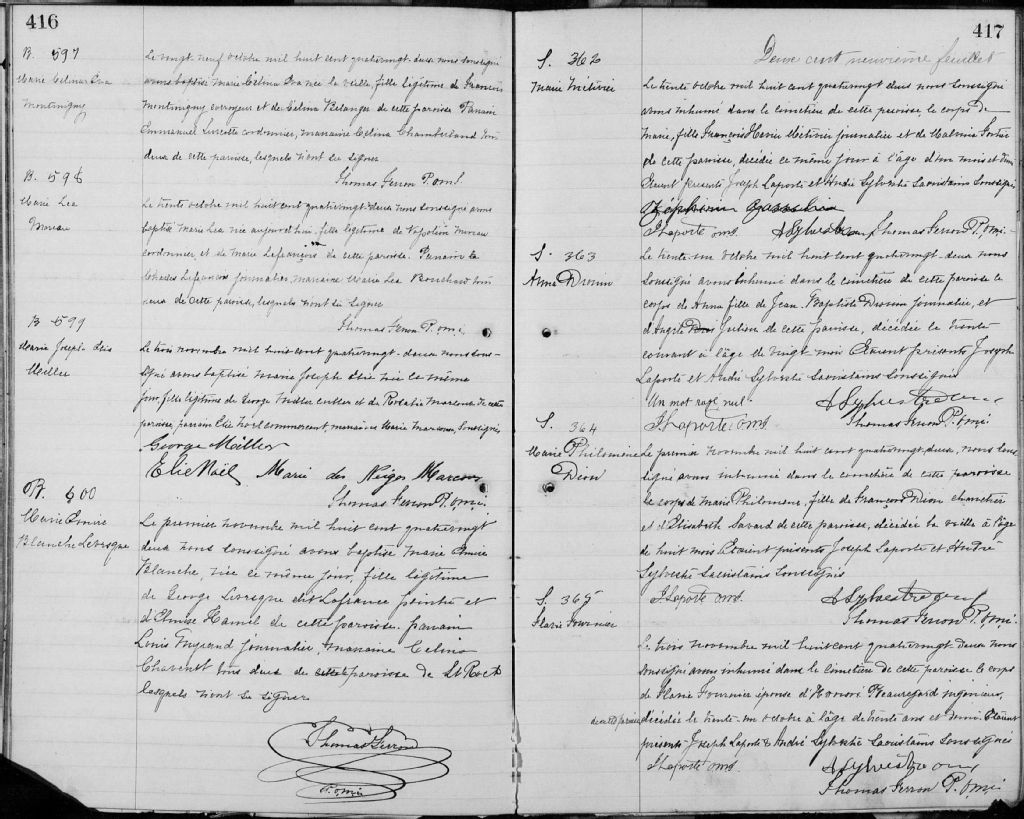 416
B. 597
Marie Celina Eva
Montminy
Le vingt neuf octobre mil huit cent quatrevingt-deux nous soussigné
avons baptisé Marie Célina Eva née la veille, fille légitime de François
Montminy corroyeur et de Célina Bélanger de cette paroisse Parrain
Emmanuel Turcotte cordonnier, marraine Célina Chamberland tous
deux de cette paroisse, lesquels n'ont su signer
Thomas Ferron P. omi.
B. 598
Marie Lea
Le trente octobre mil huit cent quatrevingt-deux nous soussigné avons
baptisé Marie Lea née aujourd'hui fille légitime de Napoléon
cordonnier, et de Marie Lefrançois de cette paroisse. Parrain
Charles Lefrancois journalier, marraine Marie Lea Bouchard tous
deux de cette paroisse, lesquels n'ont su signer
Thomas Ferron P. omi.
B 599
Marie Joseph Elie
Miller
Le trois novembre mil huit cent quatrevingt-deux nous sous-
signé avons baptisé Marie Joseph Elie née le même
jour, fille légitime de George Miller cutter et de Rosalie Marcoux de cette
paroisse, parrain Elie Noël commercant, marraine Marie Marcoux, soussignés
George Miller
Elie Noël Marie des Neiges Marcoux
Thomas Ferron P. omi.
B. 600
Marie
Blanche Levesque
Le premier novembre mil huit cent quatrevingt
deux nous soussigné avons baptisé Marie
Blanche, née le même jour, fille légitime
de George Levesque dit Lafrance peintre et
d'Elmire Hamel de cette paroisse. parrain
Louis Myrand journalier, marraine Celina
tous deux de cette paroisse de St Roch
lesquels n'ont su signer
Thomas Ferron
P. omi
417
Deux cent neuvième feuillet
S. 362
Marie Métivier
Le trente octobre mil huit cent quatrevingt deux nous soussigné
avons inhumé dans le cimetière de cette paroisse le corps de
Marie, fille François Xavier Métivier journalier et de Malvina Fortier
de cette paroisse, décédée ce même jour à l'âge d'un mois et demi
Etaient présents Joseph Laporte et André Sylvestre sacristains soussignés
JLaporte omi. ASylvestre omi Thomas Ferron P. omi.
S. 363
Anna Drouin
Le trente-un octobre mil huit cent quatrevingt-deux nous
soussigné avons inhumé dans le cimetière de cette paroisse le
corps de Anna fille de Jean-Baptiste Drouin journalier, et
Julien de cette paroisse, décédée le trente
courant à l'âge de vingt mois Etaient présents Joseph
Laporte et André Sylvestre sacristains soussignés
Un mot rayé nul.
ASylvestre omi
JLaporte omi Thomas Ferron P. omi
S. 364
Marie Philomene
Dion
Le premier novembre mil huit cent quatrevingt-deux, nous sous
signé avons inhumé dans le cimetière de cette paroisse
le corps de Marie Philomene, fille de François Dion charretier
et d'Elisabeth Savard de cette paroisse, décédée la veille à l'âge
de huit mois Etaient présents Joseph Laporte et André
Sylvestre sacristains soussignés
JLaporte omi. ASylvestre omi
Thomas Ferron P. omi.
S. 365
Flavie Fournier
Le trois novembre mil huit cent quatrevingt-deux nous
soussigné avons inhumé dans le cimetière de cette paroisse le corps
de Flavie Fournier épouse d'Honoré Beauregard ingénieur,
décédée le trente-un octobre à l'âge de trente ans et demi. Etaient
présents Joseph Laporte & André Sylvestre sacristains soussignés
JLaporte omi. ASylvestre omi
Thomas Ferron P. omi